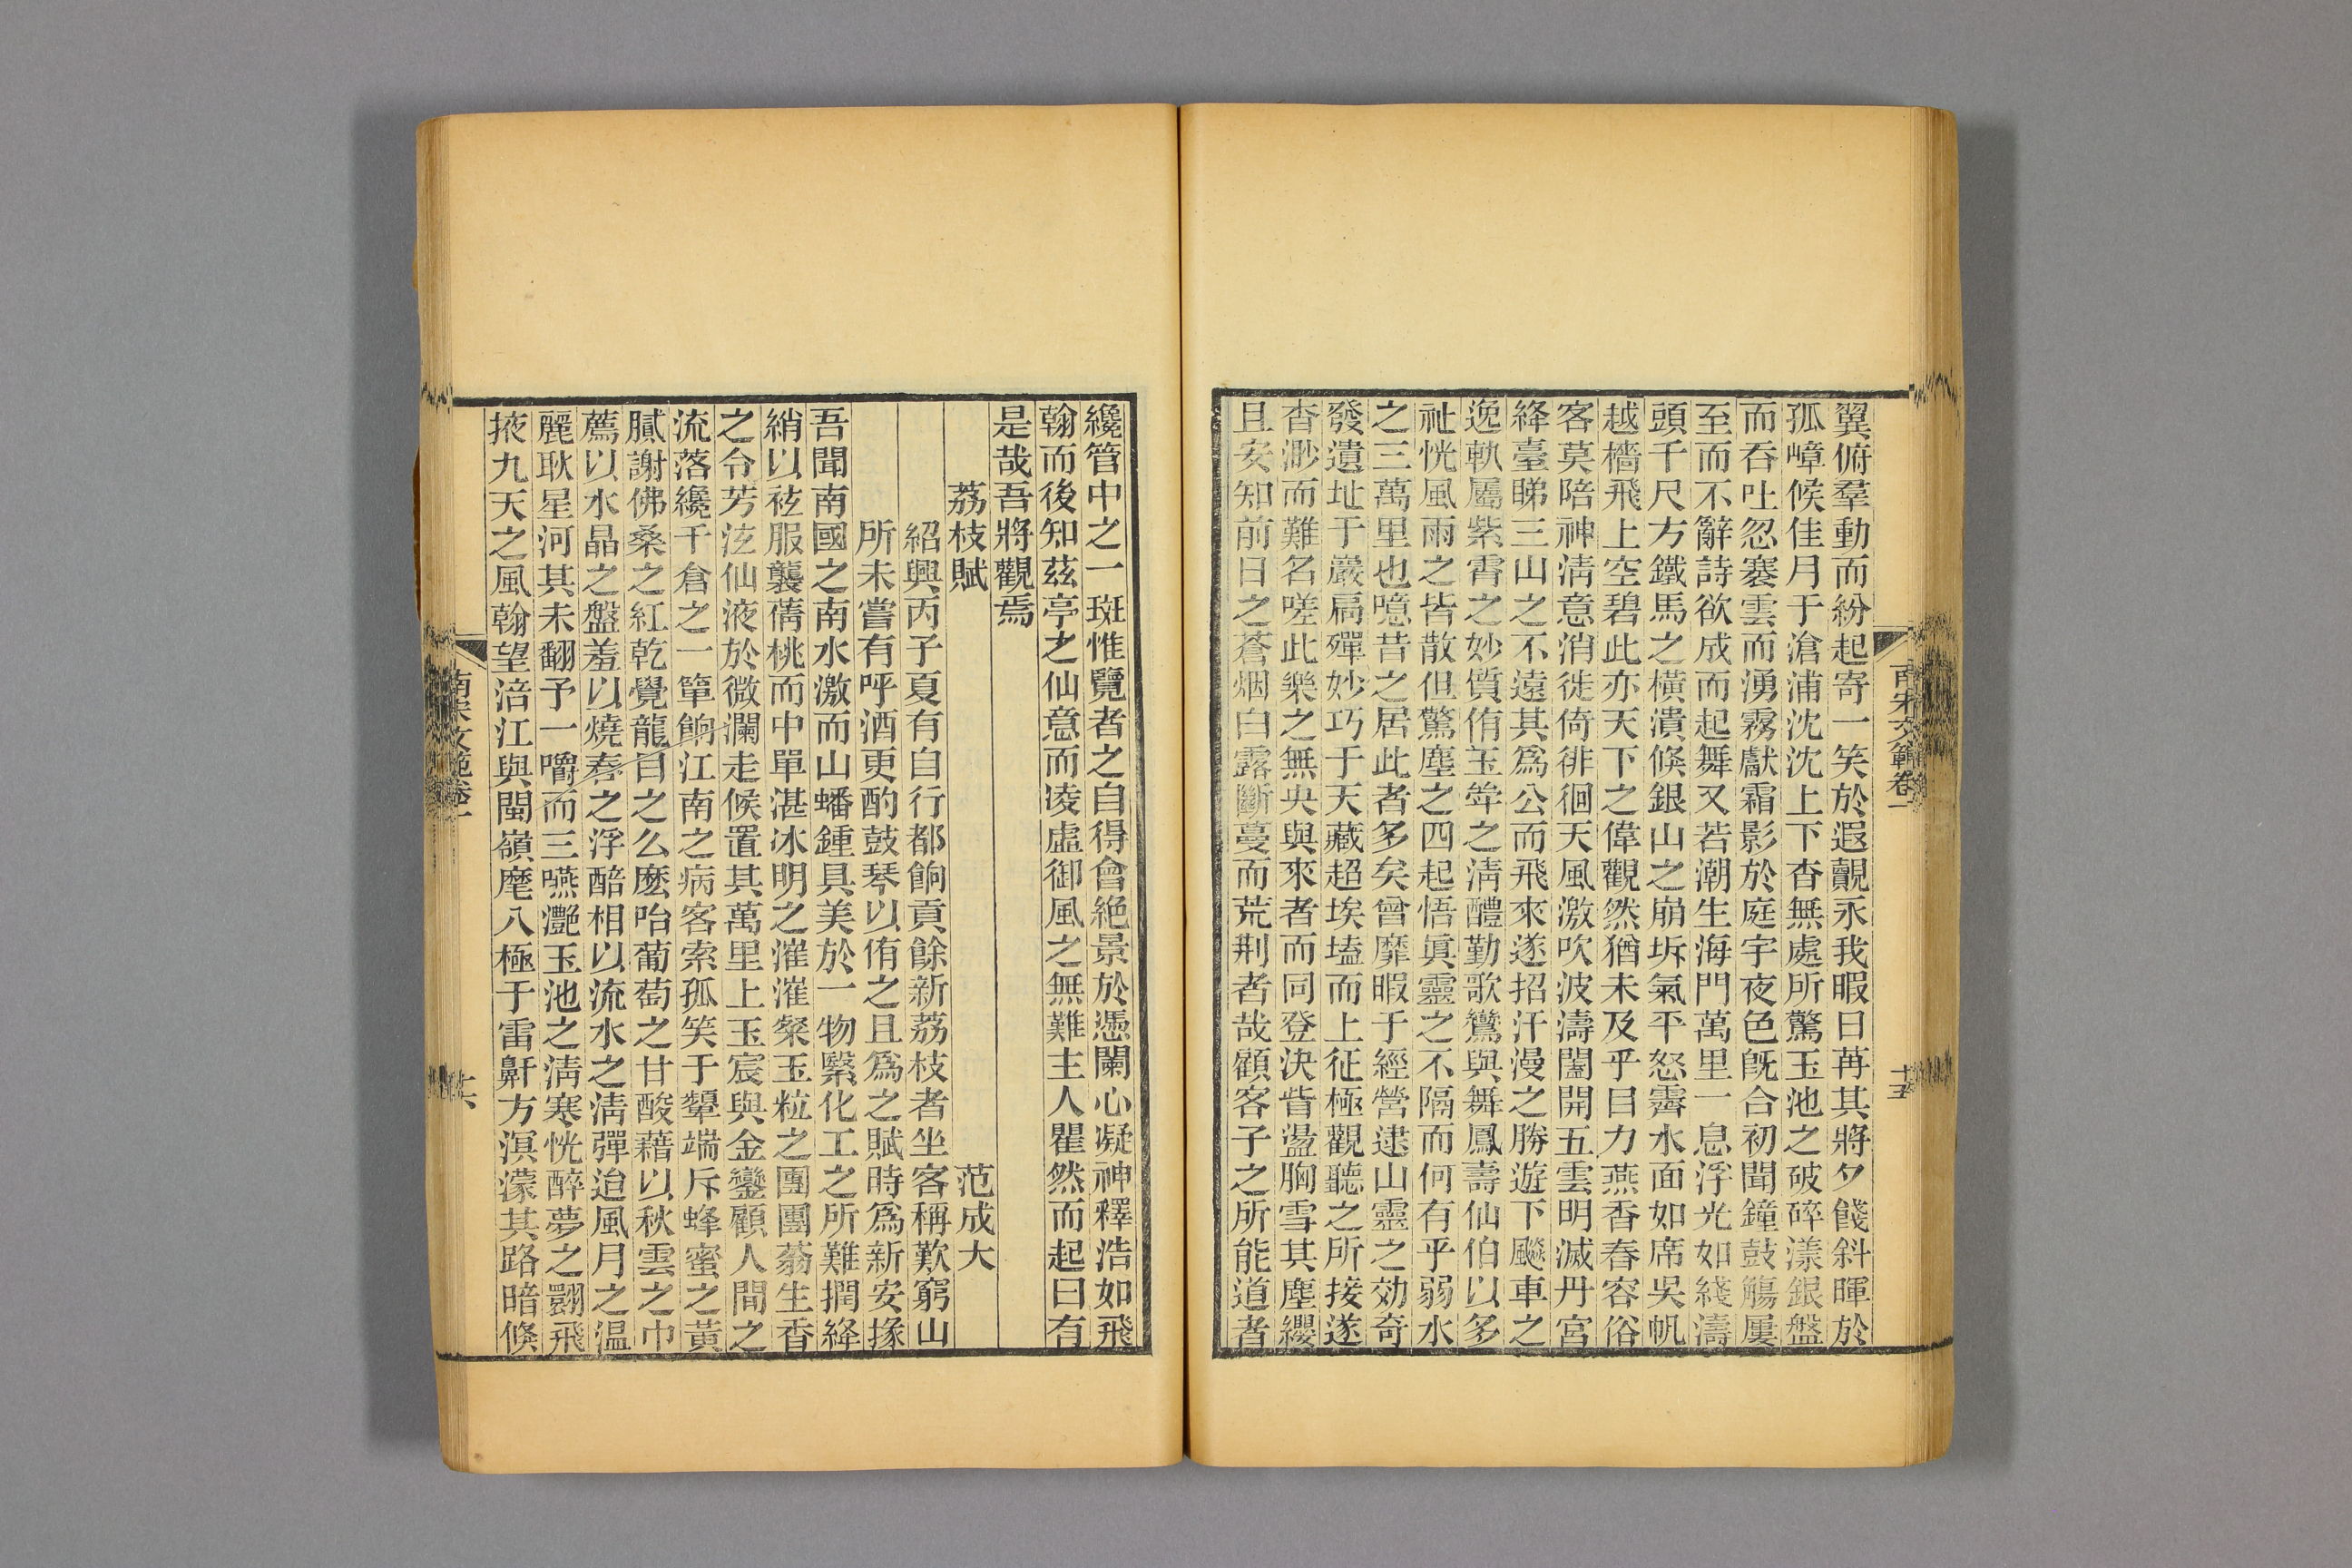 南宋文範卷一
十五
翼俯羣動而紛起寄一笑於遐覿乑我暇日苒其將夕餞斜暉於
孤嶂候佳月于滄浦沈沈上下杳無處所驚玉池之破碎漾銀盤
而吞吐忽褰雲而湧霧獻霜影於庭宇夜色旣合初聞鐘鼓觴屢
至而不辭詩欲成而起舞又若潮生海門萬里一息浮光如綫濤
頭千尺方鐵馬之橫潰倏銀山之崩坼氣平怒霽水面如席吳帆
越檣飛上空碧此亦天下之偉觀然猶未及乎目力燕香春容俗
客莫陪神淸意消徙倚徘徊天風激吹波濤闔開五雲明滅丹宮
絳臺睇三山之不遠其爲公而飛來遂招汗漫之勝遊下飈車之
逸軌屬紫霄之妙質侑玉斝之淸醴勤歌鸞與舞鳳壽仙伯以多
祉恍風雨之皆散但驚塵之四起悟眞靈之不隔而何有乎弱水
之三萬里也噫昔之居此者多矣曾靡暇于經營逮山靈之効奇
發遺址于巖扃殫妙巧于天藏超埃壒而上征極觀聽之所接遂
杳渺而難名嗟此樂之無央與來者而同登決眥盪胸雪其塵纓
且安知前日之蒼烟白露斷蔓而荒荆者哉顧客子之所能道者
纔管中之一斑惟覽者之自得會絶景於憑闌心凝神釋浩如飛
翰而後知茲亭之仙意而凌虛御風之無難主人瞿然而起曰有
是哉吾將觀焉
荔枝賦 范成大
紹興丙子夏有自行都餉貢餘新荔枝者坐客稱歎窮山
所未嘗有呼酒更酌鼓琴以侑之且爲之賦時爲新安掾
吾聞南國之南水激而山蟠鍾具美於一物繄化工之所難撋絳
綃以袨服襲蒨桃而中單湛冰明之漼漼粲玉粒之團團蓊生香
之令芳泫仙液於微瀾走候置其萬里上玉宸與金鑾顧人間之
流落纔千倉之一簞餉江南之病客索孤笑于顰端斥蜂蜜之黃
膩謝佛桑之紅乾覺龍目之么麽咍葡萄之甘酸藉以秋雲之巾
薦以水晶之盤羞以燒春之浮醅相以流水之淸彈迨風月之温
麗耿星河其未翻予一嚼而三嚥灔玉池之淸寒恍醉夢之翾飛
掖九天之風翰望涪江與閩嶺麾八極于雷鼾方溟濛其路暗倏
南宋文範卷一
十六